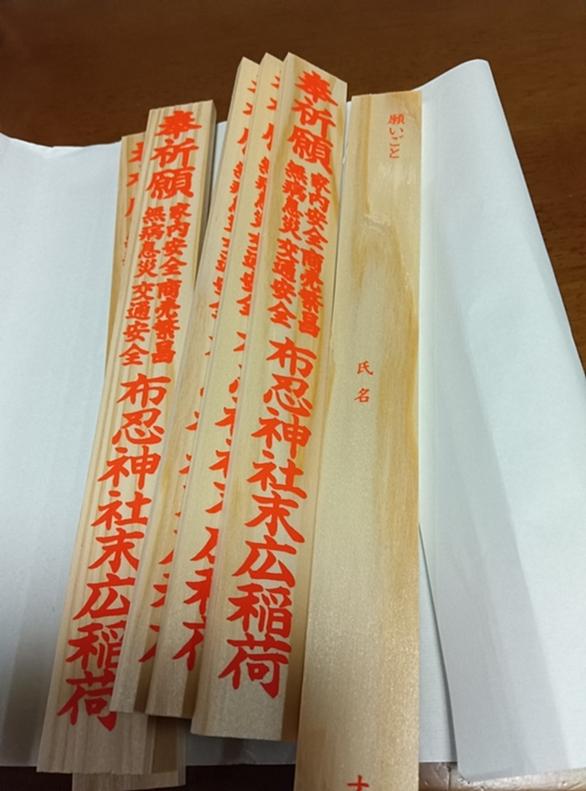 願いごと
氏名
奉祈願
家内安全 商売繁昌
無病息災 交通安全
布忍神社末広稲荷
奉祈願
家内安全 商売繁昌
無病息災 交通安全
布忍神社末広稲荷